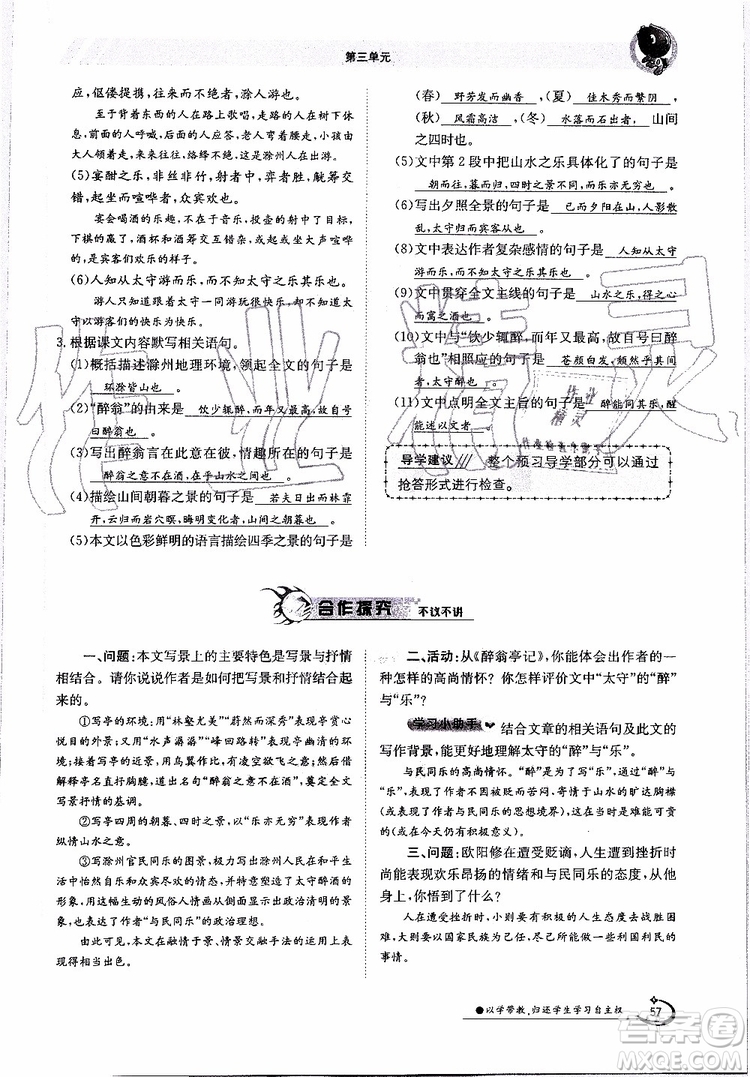 第三单元
应，伛偻提携，往来而不绝者，滁人游也。
至于背着东西的人在路上歌唱，走路的人在树下休
息，前面的人呼喊，后面的人应答，老人弯着腰走，小孩由
大人领着走，来来往往，络绎不绝，这是滁州人们在出游。
(5)宴酣之乐，非丝非竹，射者中，弈者胜，觥筹交
错，起坐而喧哗者，众宾欢也。
宴会喝酒的乐趣，不在于音乐，投壶的射中了目标，
下棋的赢了，酒杯和酒筹交互错杂，或起或坐大声喧哗
的，是宾客们欢乐的样子。
(6)人知从太守游而乐，而不知太守之乐其乐也。
游人只知道跟随太守游玩的快乐，却不知道
太守以游人的快乐为快乐。
3. 根据课文内容默写相关语句。
(1)概括描述滁州地理环境，领起全文的句子是
环滁皆山也。
(2)“醉翁”的由来是 饮少辄醉，而年又最高，故自号
曰醉翁也 。
(3)写出醉翁言在此意在彼，情趣所在的句子是
醉翁之意不在酒，在乎山水之间也 。
(4)描绘山间朝暮之景的句子是 若夫日出而林霏
开，云归而岩穴暝，晦明变化者，山间之朝暮也 。
(5)本文以色彩鲜明的语言描绘四季之景的句子是
(春) 野芳发而幽香 ，(夏) 佳木秀而繁阴 ，
(秋) 风霜高洁 ，(冬) 水落而石出者 ，山间
之四时也。
(5)文中第2段中把山水之乐具体化了的句子是
朝而往，暮而归，四时之景不同，而乐亦无穷也 。
(6)写出夕照全景的句子是 已而夕阳在山，人影散
乱，太守归而宾客从也 。
(8)文中表达作者复杂感情的句子是 人知从太守
游而乐，而不知太守之乐其乐也 。
(9)文中贯穿全文主线的句子是 山水之乐，得之心
而寓之酒也 。
(10)文中与“饮少辄醉，而年又最高，故自号曰醉
翁也”相照应的句子是 苍颜白发，颓然乎其间
者，太守醉也 。
(11)文中点明全文主旨的句子是 醉能同其乐，醒
能述以文者 。
导学建议 整个预习导学部分可以通过
抢答形式进行检查。
合作探究 不议不讲
一、问题：本文写景上的主要特色是写景与抒情
相结合。请你说说作者是如何把写景和抒情结合起
来的。
①写亭的环境：用“林壑尤美”“蔚然而深秀”表现亭赏心
悦目的外景；又用“水声潺潺”“峰回路转”表现亭幽清的环
境；接着写亭的近景，用鸟翼作比，有凌空欲飞之意，然后借
解释亭名直抒胸臆，道出名句“醉翁之意不在酒”，奠定全文
写景抒情的基调。
②写亭四周的朝暮、四时之景，以“乐亦无穷”表现作者
纵情山水之意。
③写滁州官民同乐的图景，极力突出滁人在和平生活
下怡然自乐和众宾尽欢的情态，特意突出了太守醉酒的形
象，用这幅生动的风俗人情画从侧面显示出政治清明的景
象，也寄寓着“与民同乐”的政治理想。
由此可见，本文在融情于景、情景交融手法的运用上表
现得相当出色。
二、活动：从《醉翁亭记》，你能体会出作者的一
种怎样的高尚情怀？你怎样评价文中“太守”的“醉”
与“乐”？
学习小助手 结合文章的相关语句及此文的
写作背景，能更好地理解太守的“醉”与“乐”。
与民同乐的高尚情怀。“醉”是为与民同乐而“醉”；“乐”
是“乐”人民之“乐”。表现了遭贬的苦闷，寄情于山水的旷达胸襟
(或作者与民同乐的思想境界)。
(在今天仍有积极意义)
三、问题：欧阳修在遭受贬谪，人生遭到挫折时
尚能表现欢乐昂扬的情绪和与民同乐的态度，从中
你悟到了什么？
人在遭受挫折时，小则要有积极的人生态度去战胜困
难，大则要以国家民族为重，尽己所能去做一些利国利民的
事情。
●以学带教，归还学生学习自主权
57
作业精灵
作业精灵
答案圈
MXQE.COM